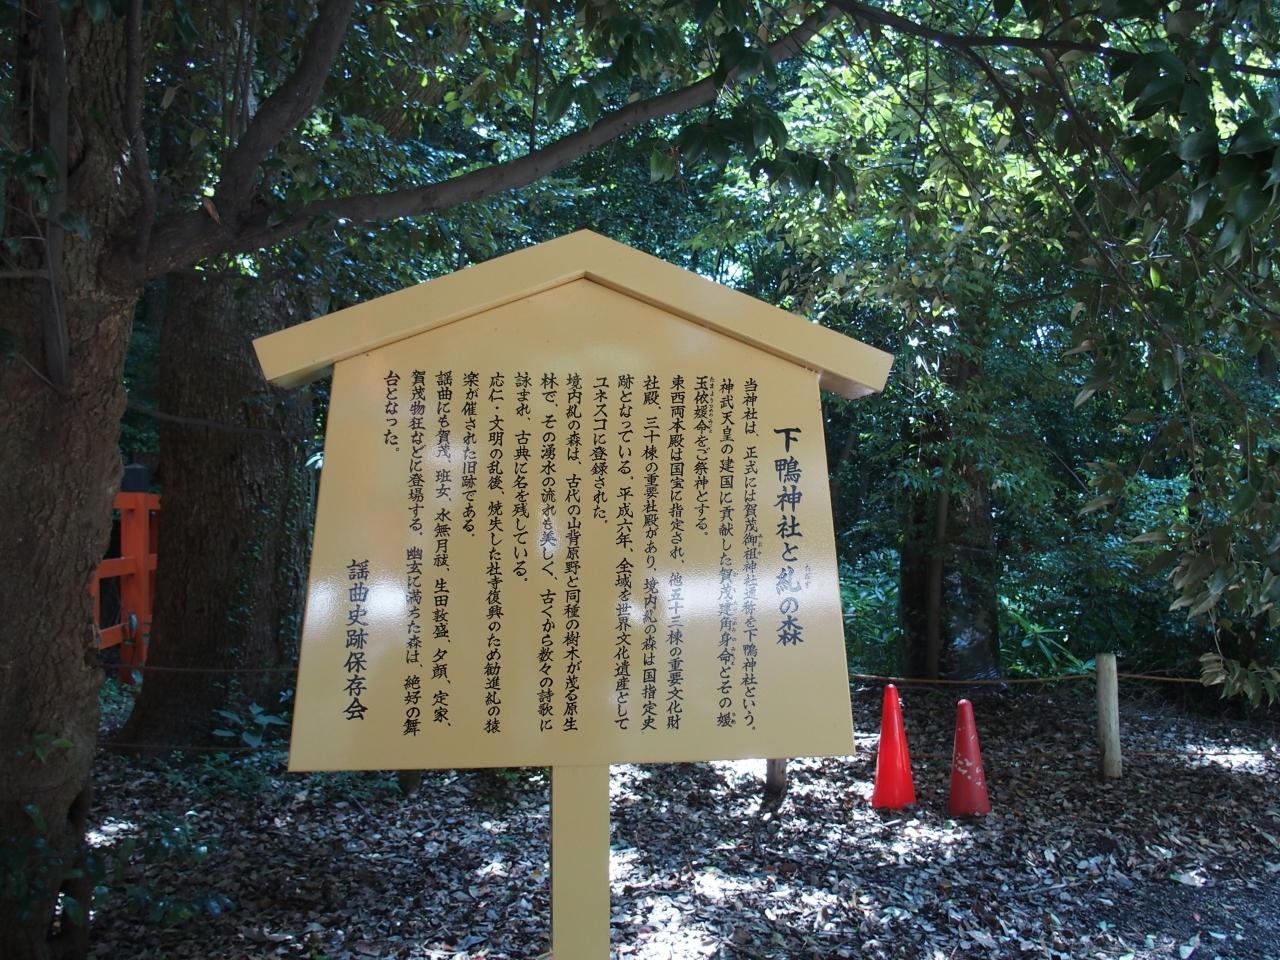 下鴨神社と糺の森
当神社は、正式には賀茂御祖神社通称を下鴨神社という。
神武天皇の建国に貢献した賀茂建角身命とその媛
玉依媛命をご祭神とする。
東西両本殿は国宝に指定され、他五十三棟の重要文化財
社殿、三十棟の重要社殿があり、境内糺の森は国指定史
跡となっている。平成六年、全域を世界文化遺産として
ユネスコに登録された。
境内糺の森は、古代の山背原野と同種の樹木が茂る原生
林で、その湧水の流れも美しく、古くから数々の詩歌に
詠まれ、古典に名を残している。
応仁・文明の乱後、焼失した社寺復興のため勧進糺の猿
楽が催された旧跡である。
謡曲にも賀茂、班女、水無月祓、生田敦盛、夕顔、定家、
賀茂物狂などに登場する。幽玄に満ちた森は、絶好の舞
台となった。
謡曲史跡保存会